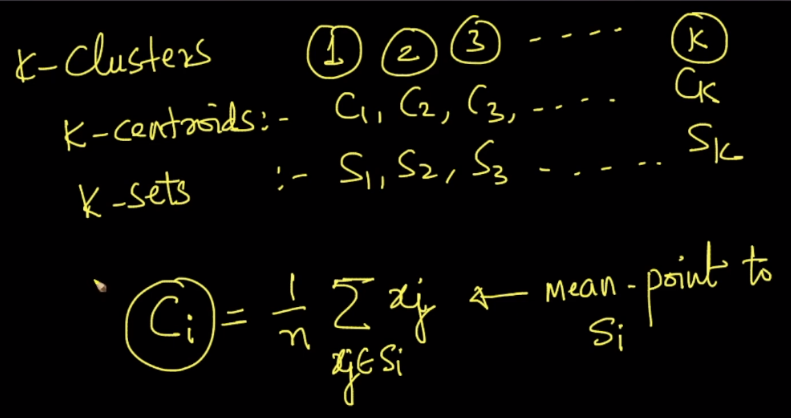 K-Clusters 1 2 3 ---- K
K-centroids:- C1, C2, C3, ---- CK
K-sets :- S1, S2, S3 ----- SK
Ci = 1/n Σ xj ← mean-point to
xj∈Si Si